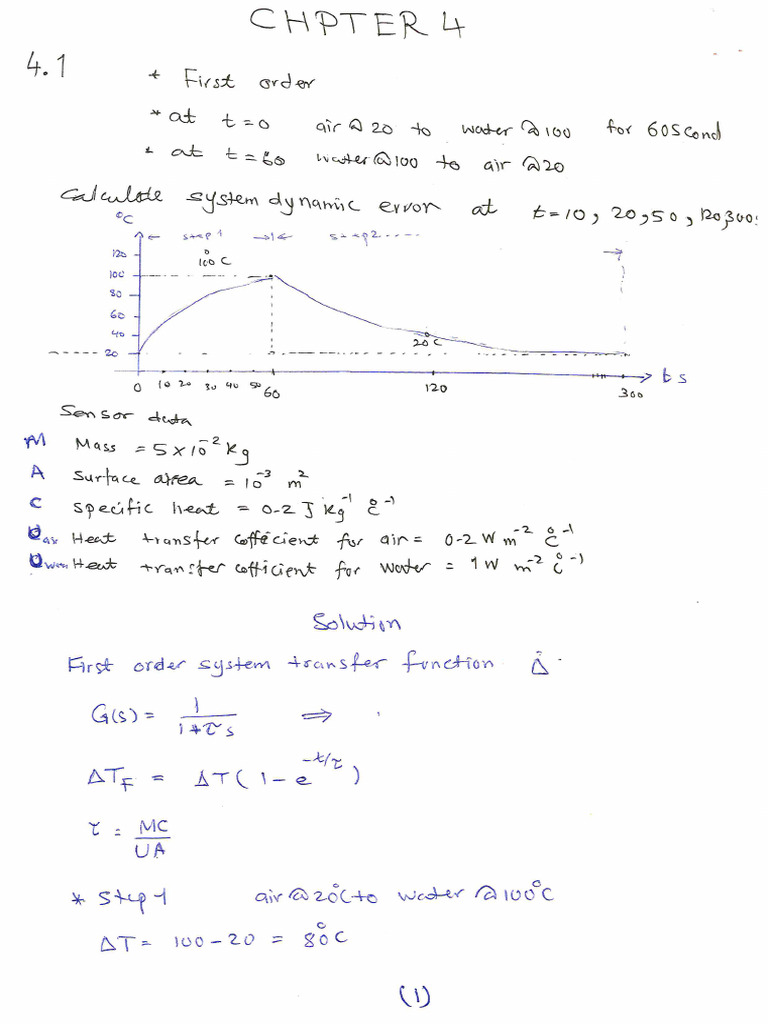 CHPTER 4
4.1
* First order
* at t=0 air @ 20 to water @ 100 for 60 Scond
* at t=60 water @ 100 to air @ 20
Calculate system dynamic error at t=10, 20, 50, 120, 300:
°C
step 1 step 2 ....
120
100 °C
100
80
60
40
20 °C
20
t s
0 10 20 30 40 50 60 120 300
Sensor data
M Mass = 5×10⁻² kg
A Surface area = 10⁻³ m²
C Specific heat = 0-2 J kg⁻¹ °C⁻¹
U air Heat transfer cofficient for air = 0-2 W m⁻² °C⁻¹
U water Heat transfer cofficient for water = 1 W m⁻² °C⁻¹
Solution
First order system transfer function
G(s) = 1 / (1+τs) ⇒
ΔT_F = ΔT(1 - e^(-t/τ))
τ = MC / UA
* Step 1 air @ 20°C to water @ 100°C
ΔT = 100 - 20 = 80°C
(1)